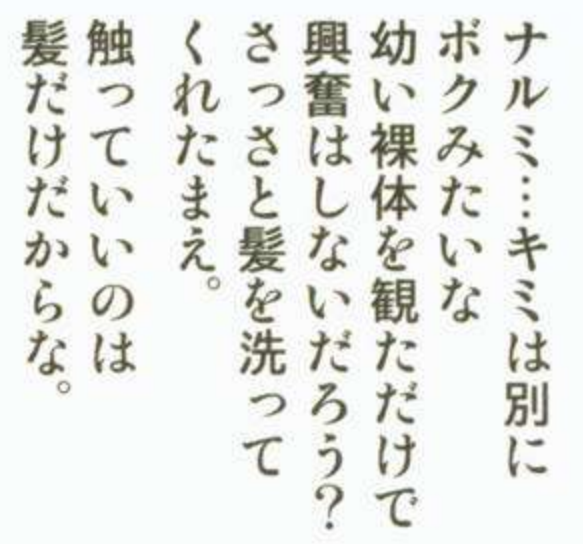 ナルミ…キミは別に
ボクみたいな
幼い裸体を観ただけで
興奮はしないだろう?
さっさと髪を洗って
くれたまえ。
触っていいのは
髪だけだからな。